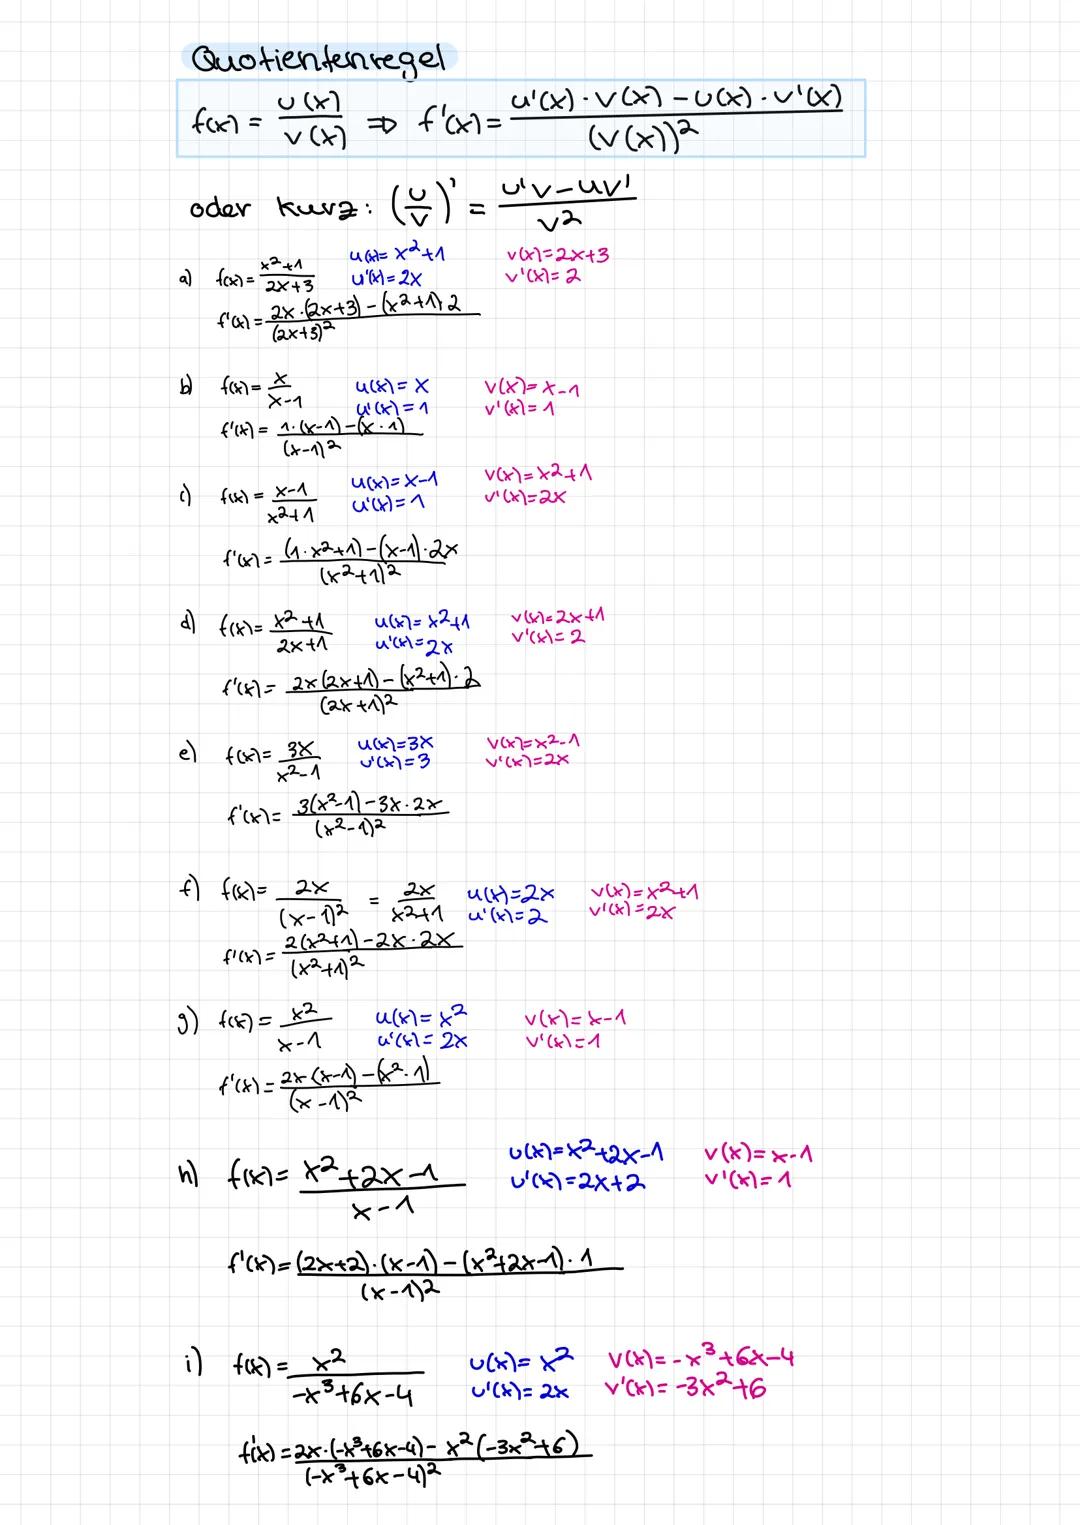 Quotientenregel
f(x) = u(x)/v(x) ⇒ f'(x) = (u'(x)·v(x) − u(x)·v'(x))/(v(x))²
oder kurz: (u/v)' = (u'v − uv')/v²
a) f(x) = (x²+1)/(2x+3) u(x) = x²+1 v(x) = 2x+3
u'(x) = 2x v'(x) = 2
f'(x) = (2x·(2x+3) − (x²+1)·2)/(2x+3)²
b) f(x) = x/(x−1) u(x) = x v(x) = x−1
u'(x) = 1 v'(x) = 1
f'(x) = (1·(x−1) − (x·1))/(x−1)²
c) f(x) = (x−1)/(x²+1) u(x) = x−1 v(x) = x²+1
u'(x) = 1 v'(x) = 2x
f'(x) = ((1·x²+1) − (x−1)·2x)/(x²+1)²
d) f(x) = (x²+1)/(2x+1) u(x) = x²+1 v(x) = 2x+1
u'(x) = 2x v'(x) = 2
f'(x) = (2x(2x+1) − (x²+1)·2)/(2x+1)²
e) f(x) = 3x/(x²−1) u(x) = 3x v(x) = x²−1
u'(x) = 3 v'(x) = 2x
f'(x) = (3(x²−1) − 3x·2x)/(x²−1)²
f) f(x) = 2x/(x−1)² = 2x/(x²+1) u(x) = 2x v(x) = x²+1
u'(x) = 2 v'(x) = 2x
f'(x) = (2(x²+1) − 2x·2x)/(x²+1)²
g) f(x) = x²/(x−1) u(x) = x² v(x) = x−1
u'(x) = 2x v'(x) = 1
f'(x) = (2x·(x−1) − (x²·1))/(x−1)²
h) f(x) = (x²+2x−1)/(x−1) u(x) = x²+2x−1 v(x) = x−1
u'(x) = 2x+2 v'(x) = 1
f'(x) = ((2x+2)·(x−1) − (x²+2x−1)·1)/(x−1)²
i) f(x) = x²/(−x³+6x−4) u(x) = x² v(x) = −x³+6x−4
u'(x) = 2x v'(x) = −3x²+6
f'(x) = (2x·(−x³+6x−4) − x²(−3x²+6))/(−x³+6x−4)²